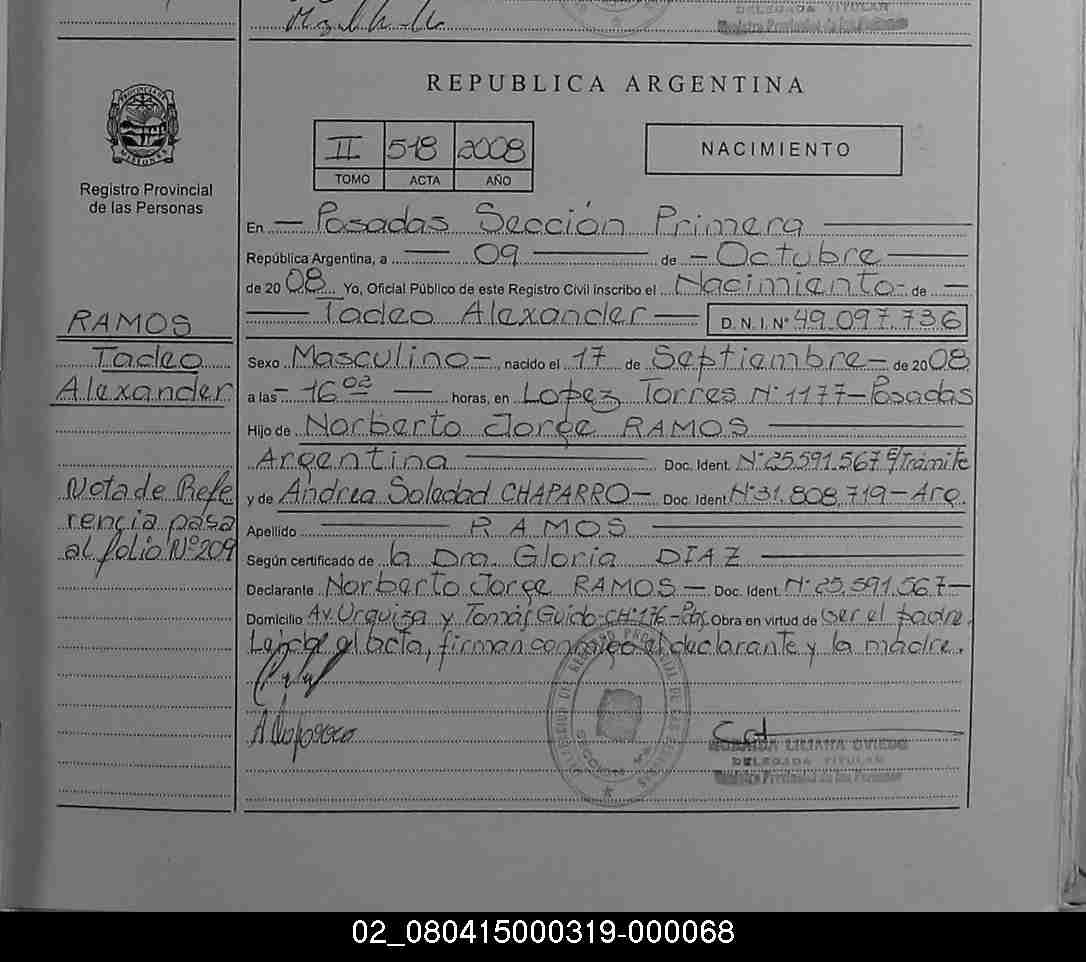 DELEGADA TITULAR
Registro Provincial de las Personas
REPUBLICA ARGENTINA
PROVINCIA DE MISIONES
II 518 2008
TOMO ACTA AÑO
NACIMIENTO
Registro Provincial
de las Personas
En — Posadas Sección Primera
República Argentina, a — 09 — de — Octubre
de 2008 Yo, Oficial Público de este Registro Civil inscribo el Nacimiento - de —
— Tadeo Alexander — D.N.I. Nº 49.097.736
RAMOS
Tadeo
Alexander
Sexo Masculino -, nacido el 17 de Septiembre - de 2008
a las - 16 03 — horas, en Lopez Torres Nº 1177 - Posadas
Hijo de Norberto Jorge RAMOS
Argentina — Doc. Ident. Nº 25.591.567 e/Trámite
y de Andrea Soledad CHAPARRO - Doc. Ident Nº 31.808.719 - Arg.
Nota de Refe
rencia pasa
al folio Nº 209
Apellido — RAMOS —
Según certificado de la Dra. Gloria DIAZ —
Declarante Norberto Jorge RAMOS - Doc. Ident. Nº 25.591.567 -
Domicilio Av. Urquiza y Tomás Guido - CH: 176 - Pdas. Obra en virtud de Ser el padre.
Leída el acta, firman conmigo el declarante y la madre.
LILIANA OVIEDO
DELEGADA TITULAR
Registro Provincial de las Personas
02_080415000319-000068